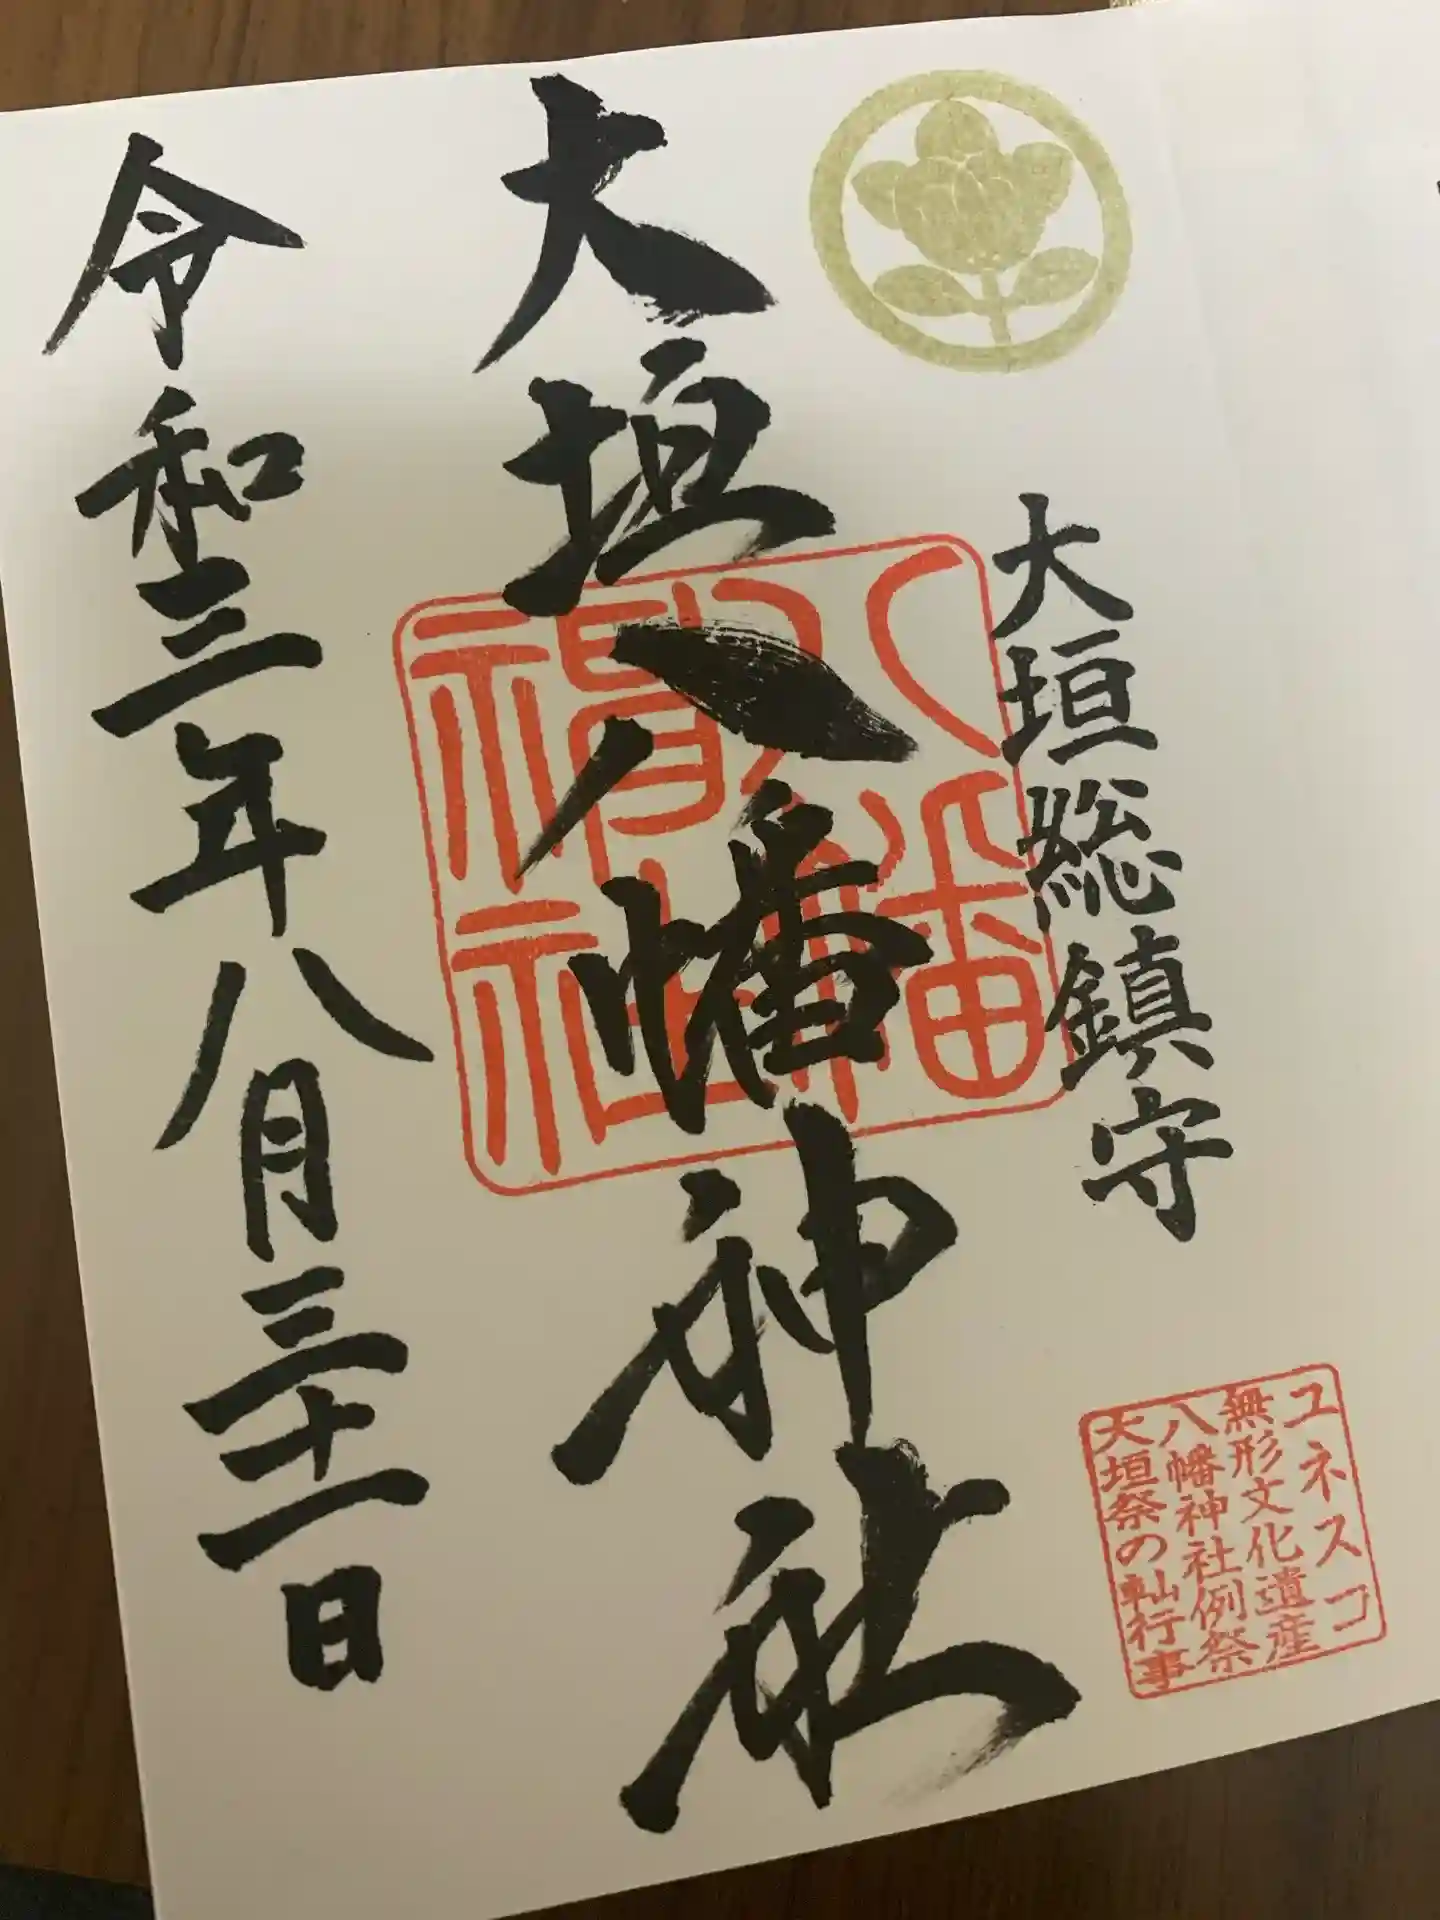 大垣総鎮守
大垣八幡神社
令和三年八月三十一日
八幡
神社
ユネスコ
無形文化遺産
八幡神社例祭
大垣祭の軕行事